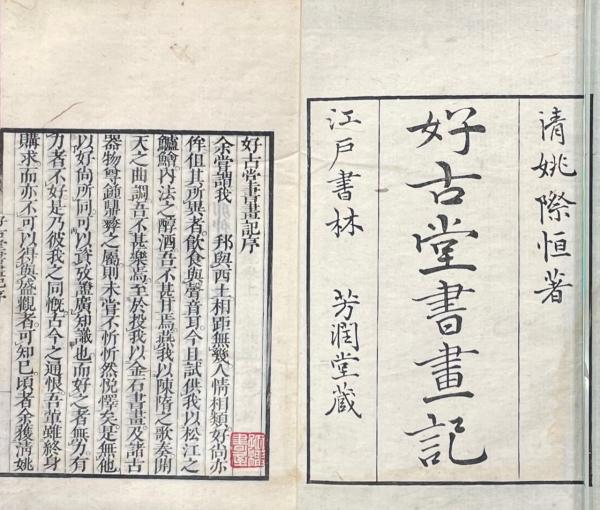 清姚際恒著
好古堂書畫記
江戶書林 芳潤堂藏
好古堂書畫記序
余嘗謂我 邦與西土相距無幾人情相類好尚亦
侔但其所異者飲食與聲音耳今且試供我以松江之
鱸鱠內法之醇酒吾不甚甘焉我以陳隋之歌奏開
天之曲調吾不甚樂焉至於投我以金石書畫及諸古
器物尊鍾鼎彝之屬則未嘗不忻忻然悅懌矣是無他
以好尚所同可以資攷證廣知識也而好之者無力有
力者不好是乃彼我之同慨古今之通恨吾輩雖終身
購求而亦不可以得與盛觀者可知已頃者余獲清姚